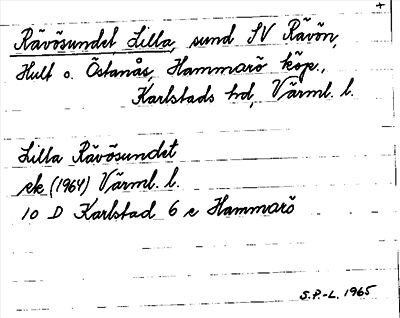 +
Rävösundet, Lilla, sund SV Rävön,
Hult o. Östanås, Hammarö köp.,
Karlstads hd, Värml. l.
Lilla Rävösundet
ek (1964) Värml. l.
10 D Karlstad 6 e Hammarö
S.P.-L. 1965